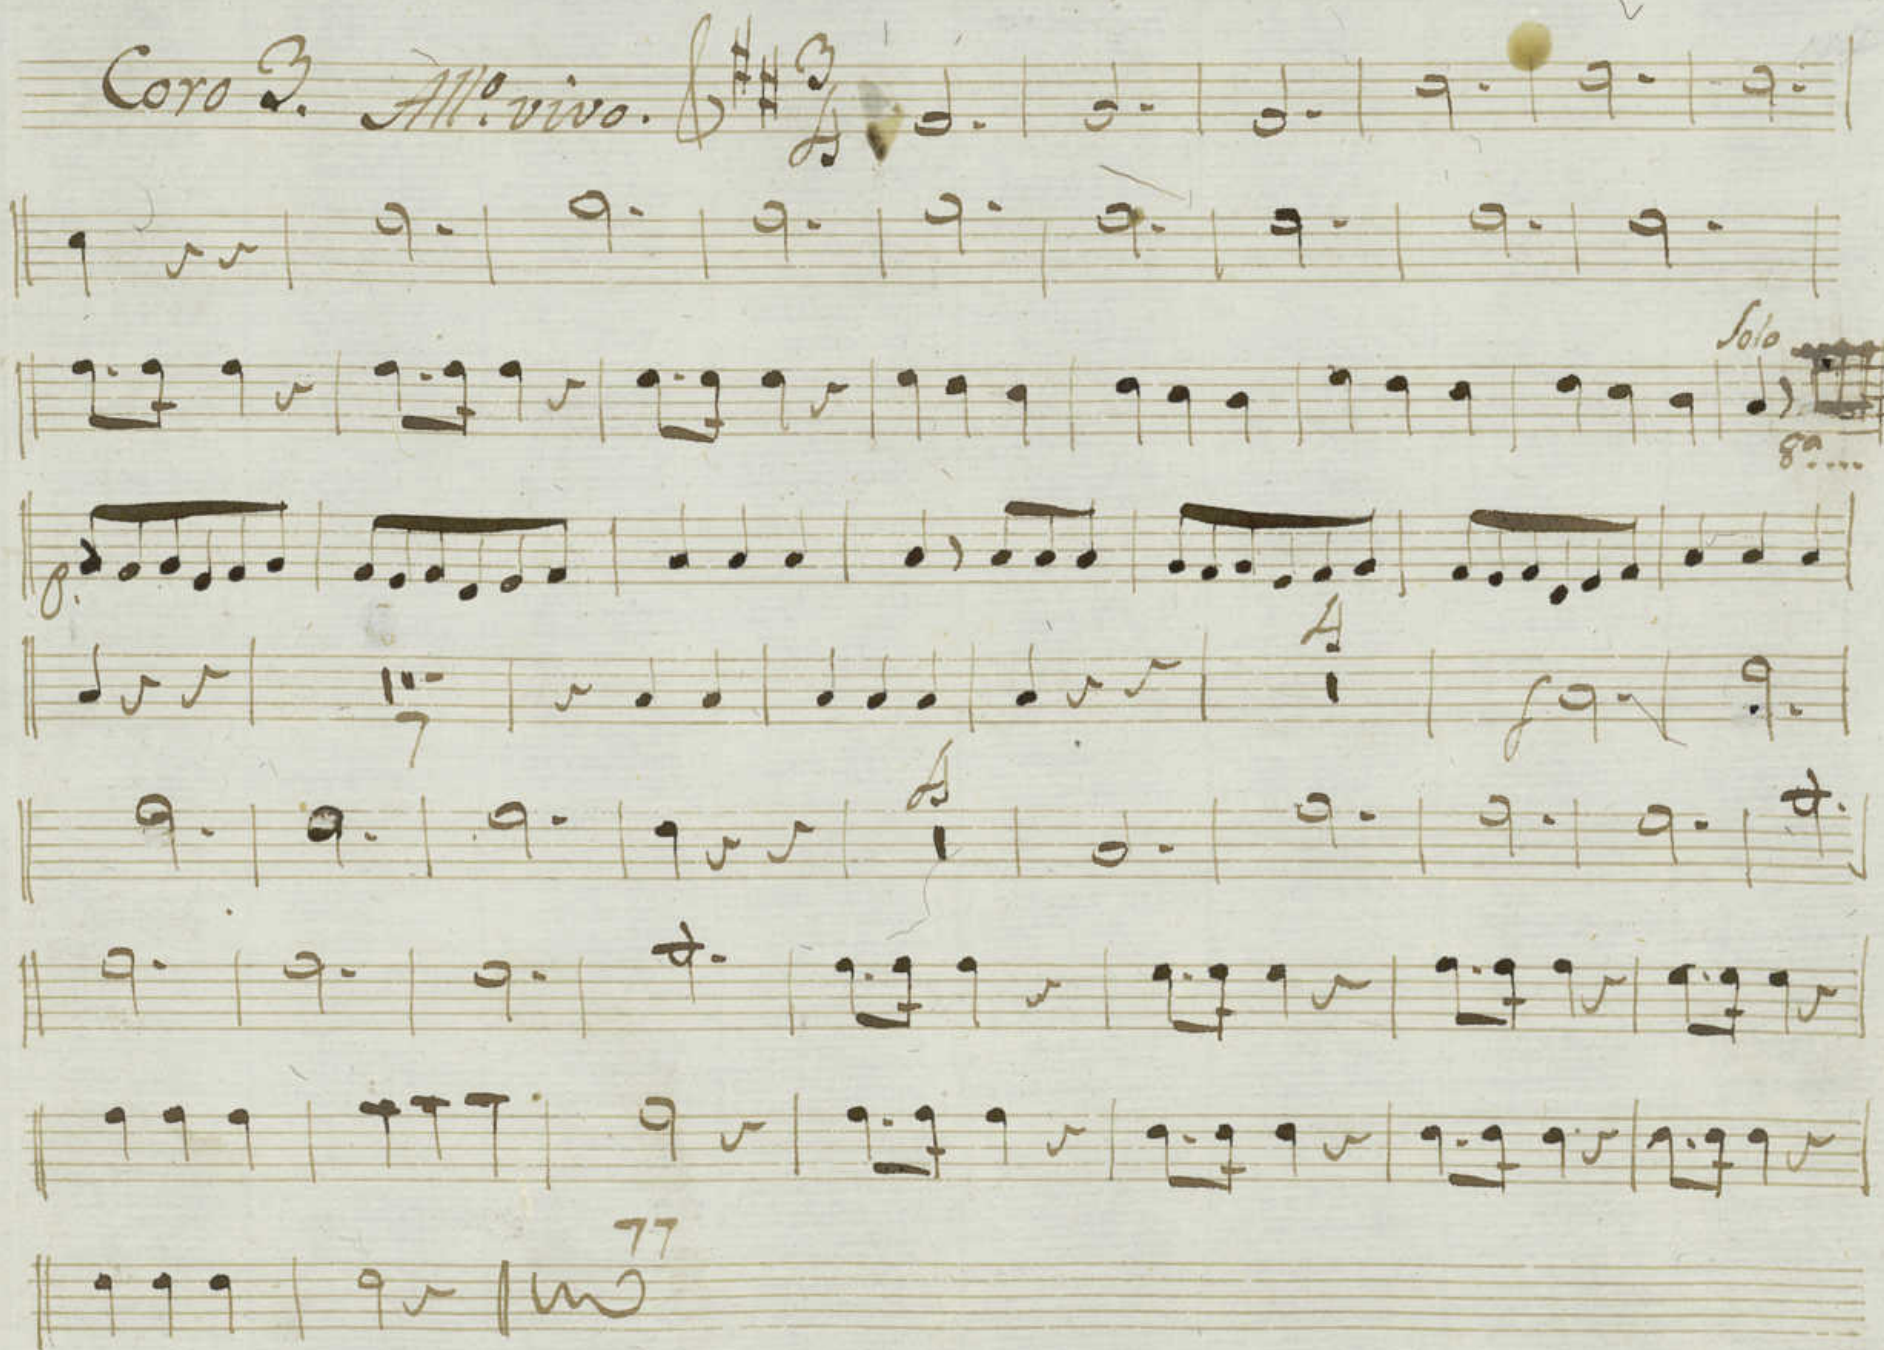 Coro 3. All.º vivo. 3
4
Solo
8ª....
p.
4
7 f
4
77